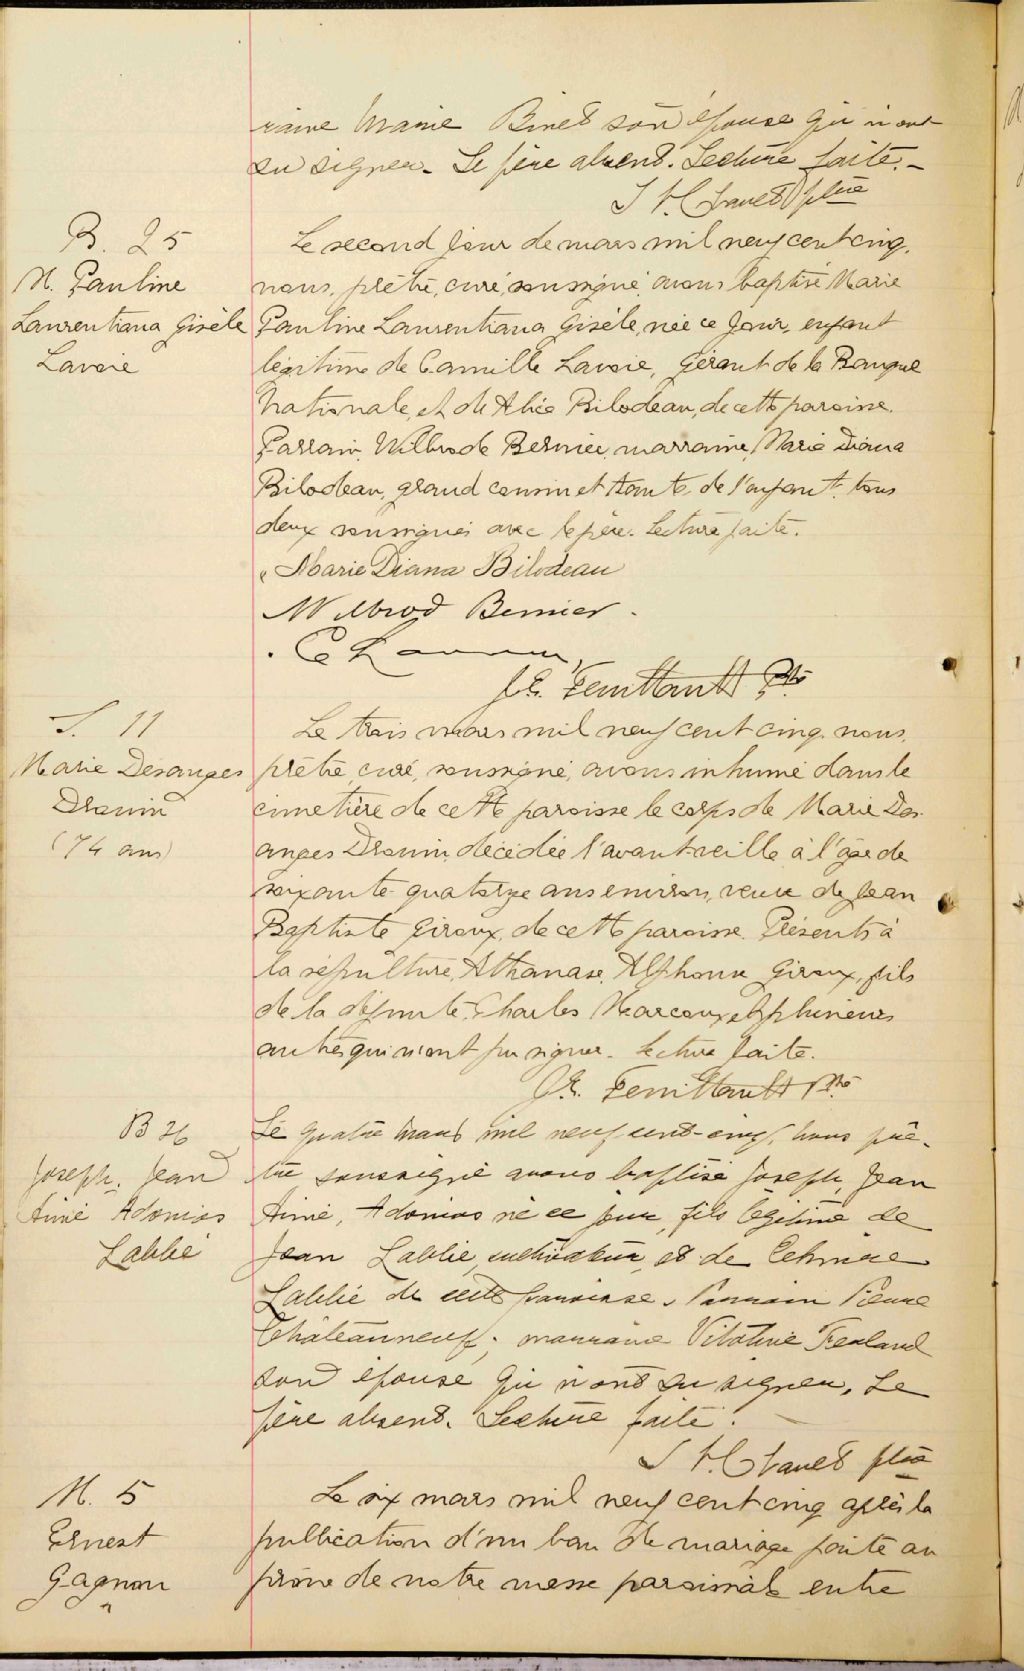 raine Marie Binet son épouse qui n'ont
su signer. Le père absent. Lecture faite.
ptre
B. 25
M. Pauline
Laurentiana Gisèle
Lavoie
Le second jour de mars mil neuf cent cinq,
nous, prêtre, curé, soussigné, avons baptisé Marie
Pauline Laurentiana Gisèle, née ce jour, enfant
légitime de Camille Lavoie, gérant de la Banque
Nationale, et de Alice Bilodeau, de cette paroisse.
Parrain, Wilbrode Bernier, marraine, Marie Diana
Bilodeau, grand cousin et tante de l'enfant, tous
deux soussignés avec le père. Lecture faite.
Marie Diana Bilodeau
Wilbrod Bernier.
C Lavoie
J. E. Feuiltault Ptre.
S. 11
Marie Desanges
Drouin
(74 ans)
Le trois mars mil neuf cent cinq, nous,
prêtre, curé, soussigné, avons inhumé dans le
cimetière de cette paroisse le corps de Marie Des-
anges Drouin, décédée l'avant-veille à l'âge de
soixante-quatorze ans environ, veuve de Jean
Baptiste Giroux, de cette paroisse. Présents à
la sépulture, Athanase, Alphonse Giroux, fils
de la défunte, Charles Marcoux et plusieurs
autres qui n'ont pu signer. Lecture faite.
J. E. Feuiltault Ptre.
B 26
Joseph, Jean
Aimé Adonias
Labbé
Le quatre mars mil neuf cent-cinq, nous prê-
tre soussigné avons baptisé Joseph, Jean
Aimé, Adonias né ce jour, fils légitime de
Jean Labbé, cultivateur, et de
Labbé de cette paroisse. Parrain Pierre
Châteauneuf; marraine Vitaline Ferland
son épouse qui n'ont su signer. Le
père absent. Lecture faite.
ptre
M. 5
Ernest
Gagnon
"
Le six mars mil neuf cent cinq après la
publication d'un ban de mariage faite au
prône de notre messe paroissiale entre